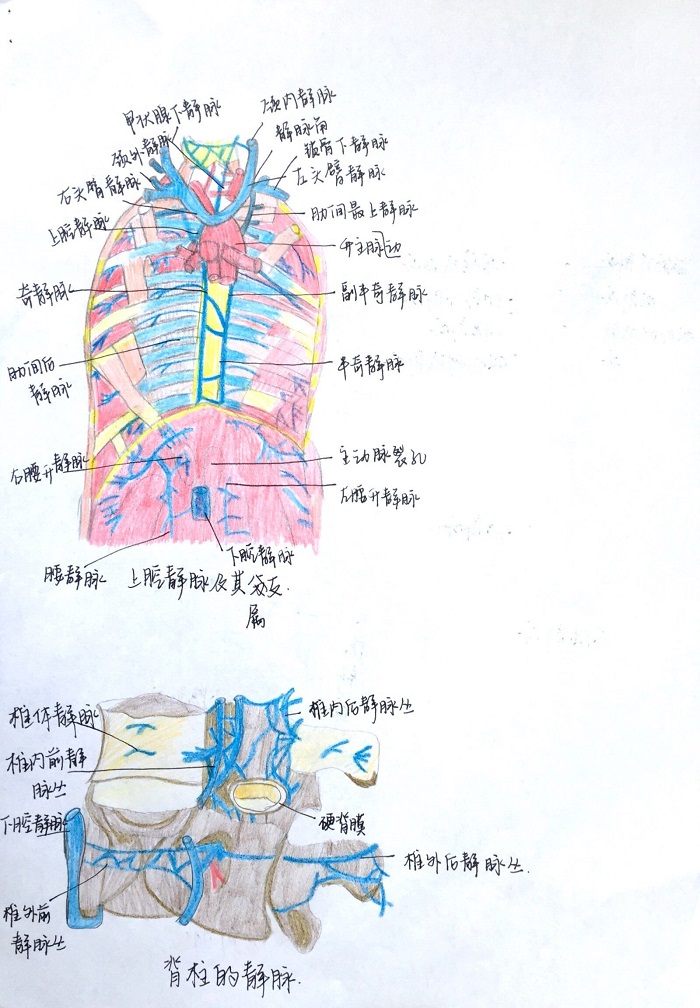 甲状腺下静脉
颈内静脉
颈外静脉
静脉角
锁骨下静脉
右头臂静脉
左头臂静脉
上腔静脉
肋间最上静脉
奇静脉
副半奇静脉
肋间后
静脉
半奇静脉
右腰升静脉
主动脉裂孔
左腰升静脉
下腔静脉
腰静脉
上腔静脉及其
属
椎体静脉
椎内后静脉丛
椎内前静
脉丛
下腔静脉
硬脊膜
椎外后静脉丛.
椎外前
静脉丛
脊柱的静脉.